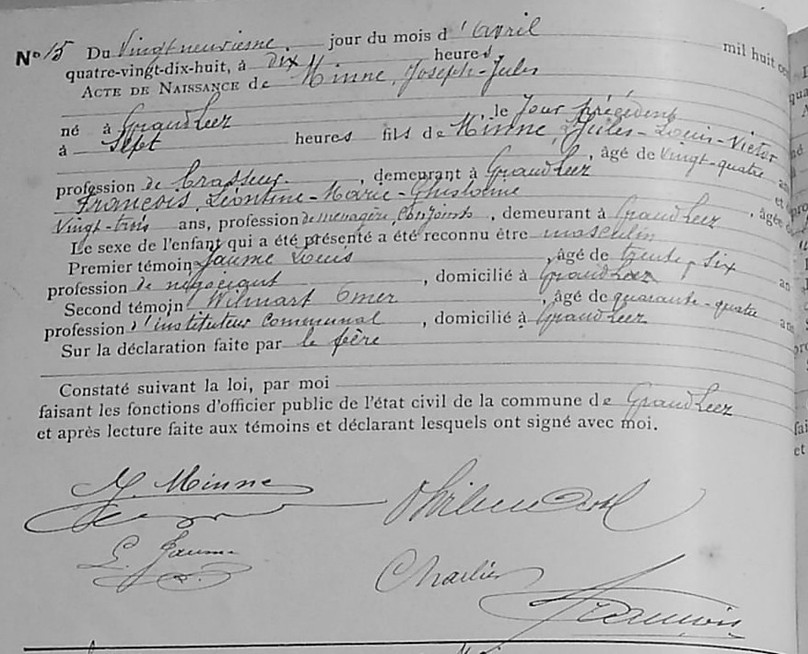 No 15 Du Vingt neuvième jour du mois d'Avril mil huit ce
quatre-vingt-dix-huit, à Dix heures
ACTE DE NAISSANCE de Minne, Joseph-Jules
né à Grand Leez le Jour précédent
à Sept heures fils de Minne, Jules-Louis-Victor
âgé de vingt-quatre an
profession de brasseur, demeurant à Grand Leez et
François, Léontine-Marie-Ghislaine, âgée
Vingt-trois ans, profession de ménagère Conjoints, demeurant à Grand Leez
Le sexe de l'enfant qui a été présenté a été reconnu être masculin
Premier témoin Jaume Louis, âgé de trente-six an
profession de négociant, domicilié à Grand Leez
Second témoin Wilmart Omer, âgé de quarante-quatre an
profession d'instituteur communal, domicilié à Grand Leez
Sur la déclaration faite par le père
Constaté suivant la loi, par moi
faisant les fonctions d'officier public de l'état civil de la commune de Grand Leez
et après lecture faite aux témoins et déclarant lesquels ont signé avec moi.
J. Minne
L. Jaume
Charlier